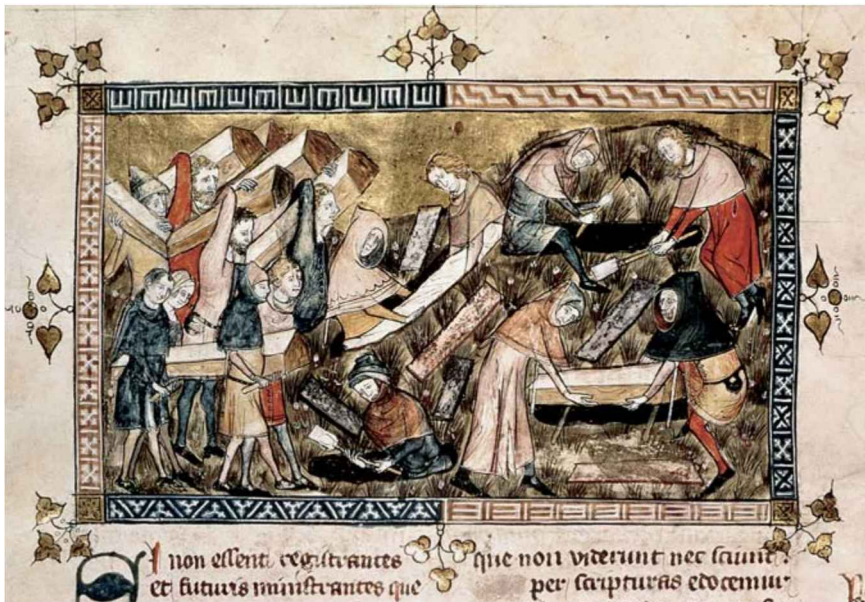 Si non essent registrantes
et futuris ministrantes que
que non viderunt nec sciunt:
per scripturas edocemur